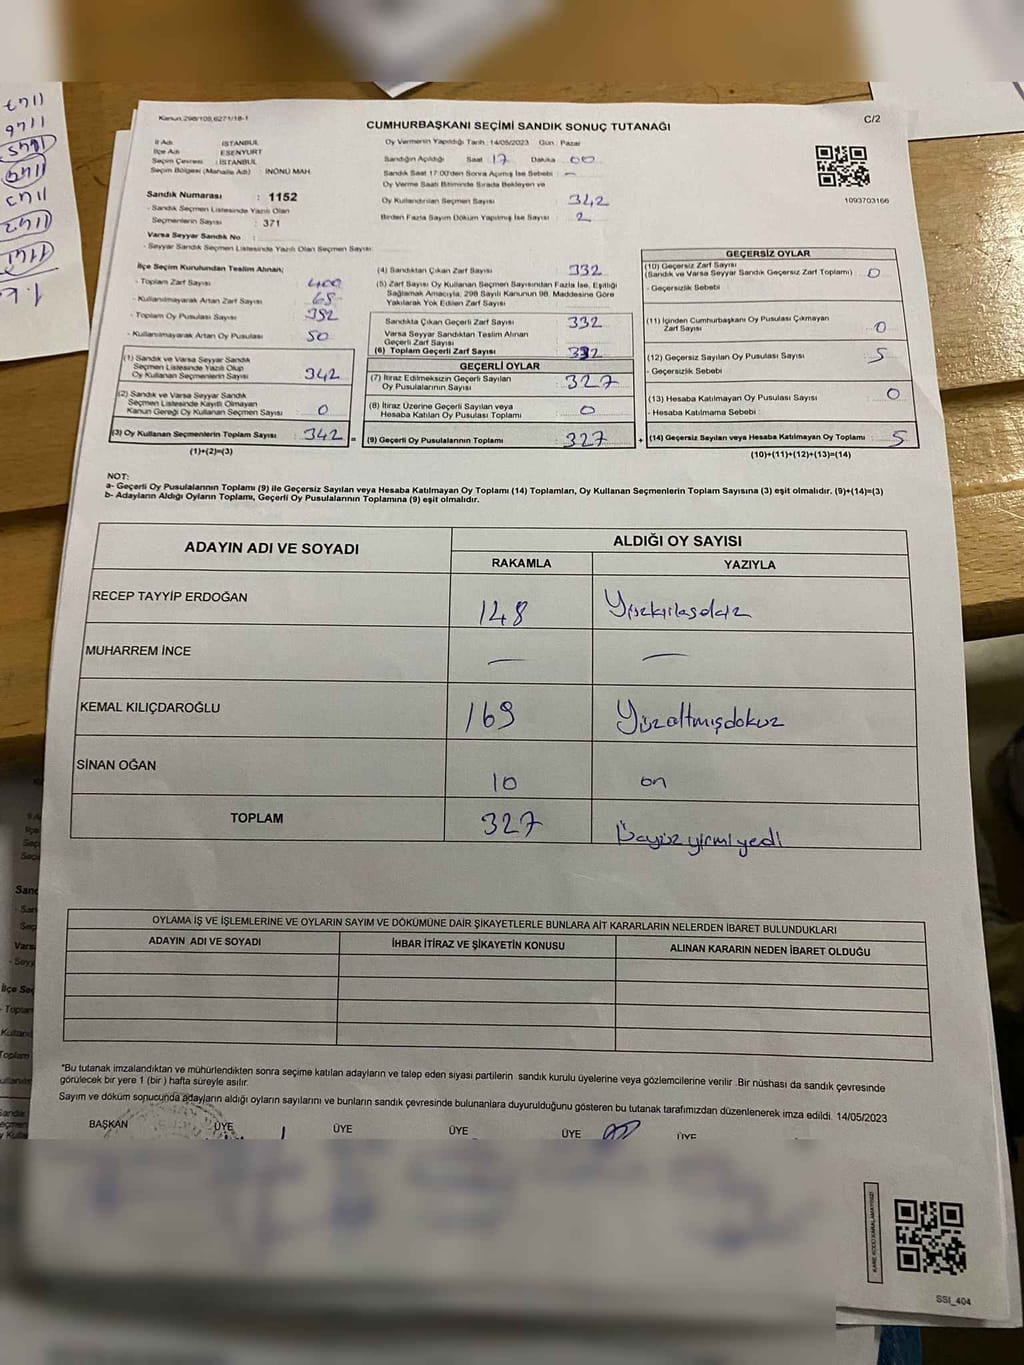 Kanun:298/105,6271/18-1
C/2
CUMHURBAŞKANI SEÇİMİ SANDIK SONUÇ TUTANAĞI
İl Adı : İSTANBUL
İlçe Adı : ESENYURT
Seçim Çevresi : İSTANBUL
Seçim Bölgesi (Mahalle Adı) : İNÖNÜ MAH.
Sandık Numarası : 1152
- Sandık Seçmen Listesinde Yazılı Olan
Seçmenlerin Sayısı : 371
Varsa Seyyar Sandık No :
- Seyyar Sandık Seçmen Listesinde Yazılı Olan Seçmen Sayısı:
Oy Vermenin Yapıldığı Tarih : 14/05/2023 Gün : Pazar
Sandığın Açıldığı Saat 17 Dakika 00
Sandık Saat 17:00'den Sonra Açılmış İse Sebebi : -
Oy Verme Saati Bitiminde Sırada Bekleyen ve
Oy Kullandırılan Seçmen Sayısı 342
Birden Fazla Sayım Döküm Yapılmış İse Sayısı : 2
1093703166
İlçe Seçim Kurulundan Teslim Alınan;
- Toplam Zarf Sayısı : 400
- Kullanılmayarak Artan Zarf Sayısı : 68
- Toplam Oy Pusulası Sayısı : 392
- Kullanılmayarak Artan Oy Pusulası : 50
(1) Sandık ve Varsa Seyyar Sandık
Seçmen Listesinde Yazılı Olup
Oy Kullanan Seçmenlerin Sayısı : 342
(2) Sandık ve Varsa Seyyar Sandık
Seçmen Listesinde Kayıtlı Olmayan
Kanun Gereği Oy Kullanan Seçmen Sayısı : 0
(3) Oy Kullanan Seçmenlerin Toplam Sayısı : 342 =
(1)+(2)=(3)
(4) Sandıktan Çıkan Zarf Sayısı : 332
(5) Zarf Sayısı Oy Kullanan Seçmen Sayısından Fazla İse, Eşitliği
Sağlamak Amacıyla, 298 Sayılı Kanunun 98. Maddesine Göre
Yakılarak Yok Edilen Zarf Sayısı :
Sandıkta Çıkan Geçerli Zarf Sayısı : 332
Varsa Seyyar Sandıktan Teslim Alınan
Geçerli Zarf Sayısı :
(6) Toplam Geçerli Zarf Sayısı : 332
GEÇERLİ OYLAR
(7) İtiraz Edilmeksizin Geçerli Sayılan
Oy Pusulalarının Sayısı : 327
(8) İtiraz Üzerine Geçerli Sayılan veya
Hesaba Katılan Oy Pusulası Toplamı : 0
(9) Geçerli Oy Pusulalarının Toplamı : 327 +
GEÇERSİZ OYLAR
(10) Geçersiz Zarf Sayısı
(Sandık ve Varsa Seyyar Sandık Geçersiz Zarf Toplamı) : 0
- Geçersizlik Sebebi :
(11) İçinden Cumhurbaşkanı Oy Pusulası Çıkmayan
Zarf Sayısı : 0
(12) Geçersiz Sayılan Oy Pusulası Sayısı : 5
- Geçersizlik Sebebi :
(13) Hesaba Katılmayan Oy Pusulası Sayısı : 0
- Hesaba Katılmama Sebebi :
(14) Geçersiz Sayılan veya Hesaba Katılmayan Oy Toplamı : 5
(10)+(11)+(12)+(13)=(14)
NOT:
a- Geçerli Oy Pusulalarının Toplamı (9) ile Geçersiz Sayılan veya Hesaba Katılmayan Oy Toplamı (14) Toplamları, Oy Kullanan Seçmenlerin Toplam Sayısına (3) eşit olmalıdır. (9)+(14)=(3)
b- Adayların Aldığı Oyların Toplamı, Geçerli Oy Pusulalarının Toplamına (9) eşit olmalıdır.
ADAYIN ADI VE SOYADI ALDIĞI OY SAYISI
RAKAMLA YAZIYLA
RECEP TAYYİP ERDOĞAN 148 Yüzkırksekiz
MUHARREM İNCE — —
KEMAL KILIÇDAROĞLU 169 Yüzaltmışdokuz
SİNAN OĞAN 10 on
TOPLAM 327 Üçyüzyirmiyedi
OYLAMA İŞ VE İŞLEMLERİNE VE OYLARIN SAYIM VE DÖKÜMÜNE DAİR ŞİKAYETLERLE BUNLARA AİT KARARLARIN NELERDEN İBARET BULUNDUKLARI
ADAYIN ADI VE SOYADI İHBAR İTİRAZ VE ŞİKAYETİN KONUSU ALINAN KARARIN NEDEN İBARET OLDUĞU
*Bu tutanak imzalandıktan ve mühürlendikten sonra seçime katılan adayların ve talep eden siyasi partilerin sandık kurulu üyelerine veya gözlemcilerine verilir .Bir nüshası da sandık çevresinde
görülecek bir yere 1 (bir ) hafta süreyle asılır.
Sayım ve döküm sonucunda adayların aldığı oyların sayılarını ve bunların sandık çevresinde bulunanlara duyurulduğunu gösteren bu tutanak tarafımızdan düzenlenerek imza edildi. 14/05/2023
BAŞKAN ÜYE ÜYE ÜYE ÜYE ÜYE
KARE KODU KARALAMAYINIZ!
SSI_404